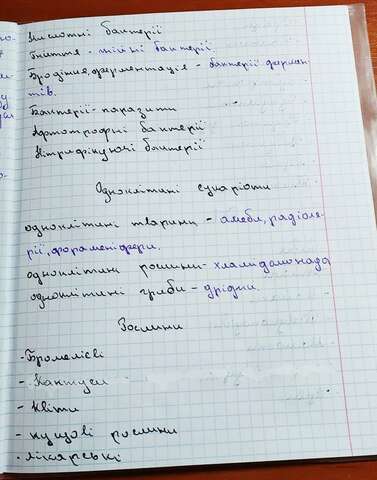 Кислотні бактерії
Гниття - гнійні бактерії
Бродіння, ферментація - бактерії фермен
тів.
Бактерії - паразити
Автотрофні бактерії
Нітрифікуючі бактерії
Одноклітинні еукаріоти
одноклітині тварини - амеба, радіоля-
рії, фораменіфери.
одноклітині рослини - хламідомонада
одноклітині гриби - дріджі.
Рослини
- Бромелієві
- Кактуси
- Квіти
- кущові рослини
- лікарські